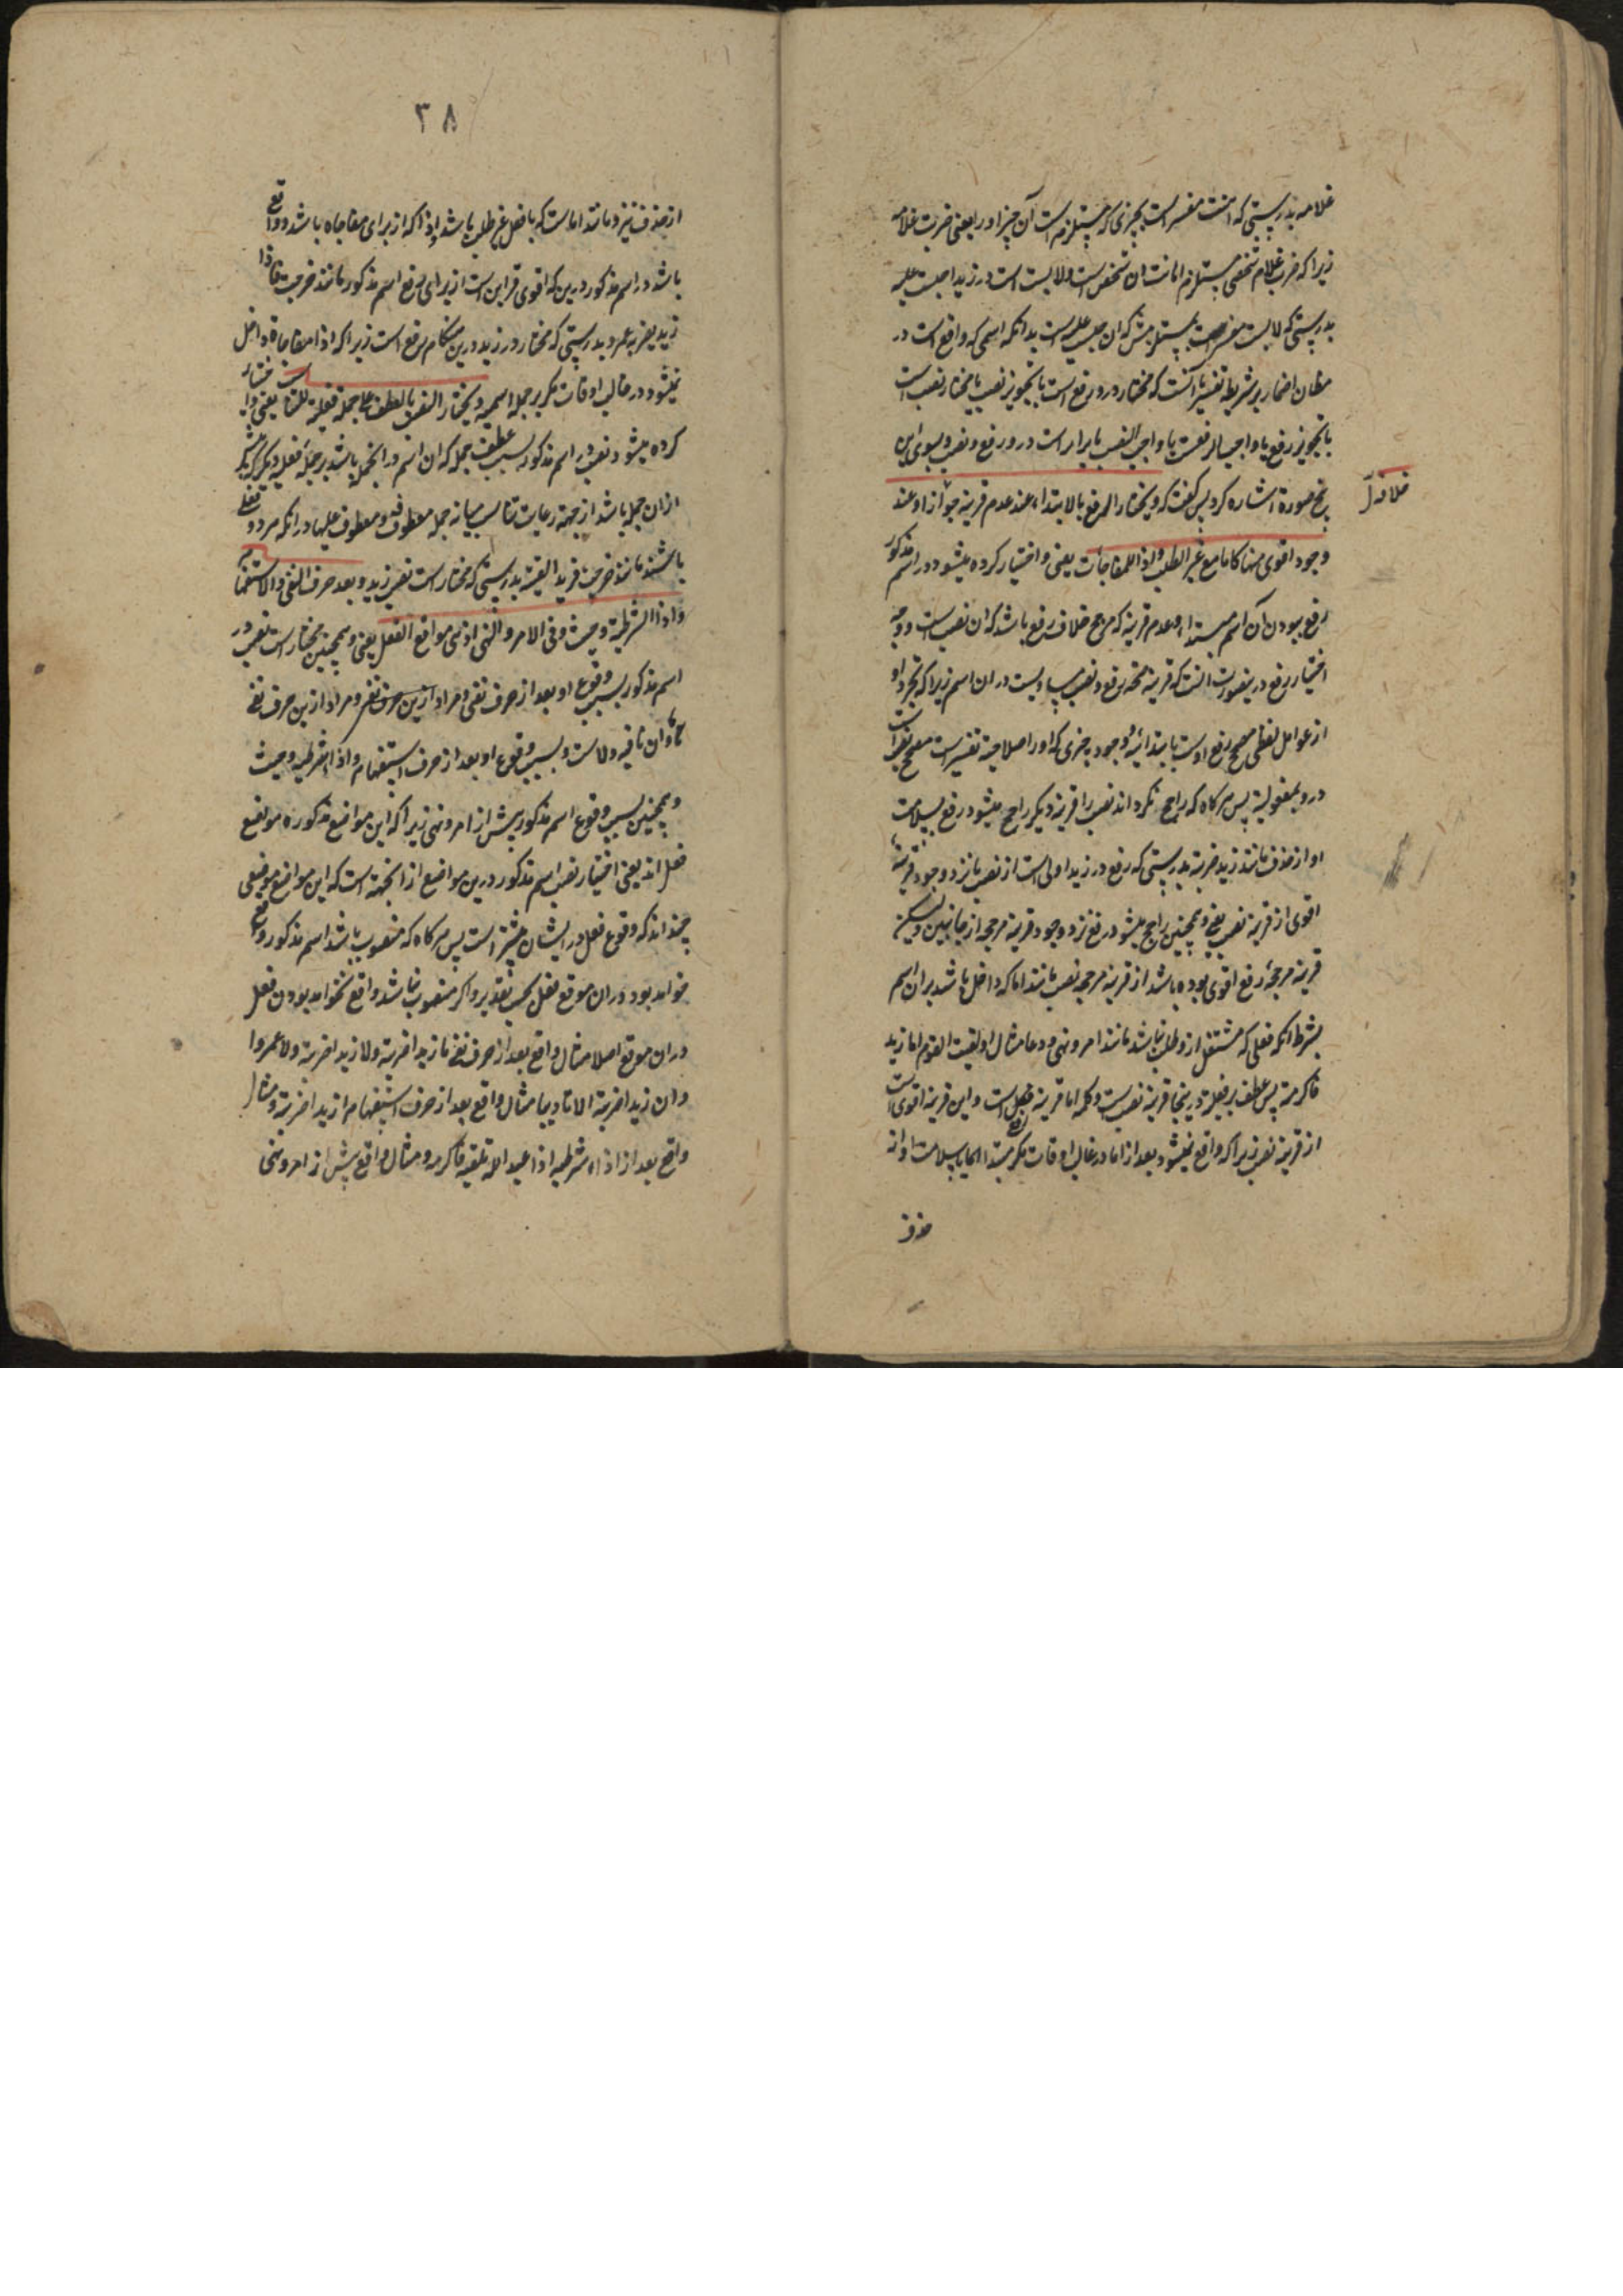 غلامه بدرستی که اهنت مفسر است بچیزی که مستلزم است آن چیز او را یعنی ضربت غلامه
زیرا که ضرب غلام شخصی مستلزم اهانت ان شخص است ولابست است در زیدا حبست علیه
بدرستی که لابست مفسر است بمستلزمش که ان حبس علیه است بدانکه اسمی که واقع است در
مظان اضمار بر شریطه تفسیر یا آنست که مختار درو رفع است با تجویز نصب یا مختار نصب است
با تجویز رفع یا واجب الرفعست یا واجب النصب یا برابر است درو رفع و نصب و بسوی این
پنج صورة اشاره کرد پس گفت که ویختار الرفع بالابتداء عند عدم قرینة خلافه او عند
خلافه
وجود اقوی منها کاما مع غیر الطلب واذا للمفاجات یعنی و اختیار کرده میشود در اسم مذکور
رفع ببودن آن اسم مبتداء و عدم قرینه که مرجح خلاف رفع باشد که ان نصب است و وجه
اختیار رفع درینصورت انست که قرینه مصححه رفع و نصب مساویست در ان اسم زیرا که تجرد او
از عوامل لفظی مصحح رفع اوست بابتدائیة و وجود چیزی که او را صلاحیة تفسیر است مصحح نصب است
درو بمفعولیة پس هرگاه که راجح نگرداند نصب را قرینه دیگر راجح میشود رفع بسلامت
او از حذف مانند زید ضربته بدرستی که رفع در زید اولی است از نصب یا نزد وجود قرینه
اقوی از قرینه نصب یعنی و همچنین راجح میشود رفع نزد وجود قرینه مرجحه از جانبین و لیکن
قرینه مرجحه رفع اقوی بوده باشد از قرینه مرجحه نصب مانند اما که داخل باشد بران اسم
بشرط انکه فعلی که مشتغل ازو طلب نباشد مانند امر و نهی و دعا مثال او لقیت القوم اما زید
فاکرمته پس عطف بر فعلیة درینجا قرینه نصب است و کلمه اما قرینه رفع است و این قرینه اقوی است
از قرینه نصب زیرا که واقع نمیشود بعد از اما در غالب اوقات مگر مبتدا
حذف
۳۸
از حذف نیز و مانند اما است که با فعل غیر طلب باشد و اذا که از برای مفاجاه باشد و واقع
باشد در اسم مذکور درین که اقوی قراین است از برای رفع اسم مذکور مانند خرجت فاذا
زید یضربه عمرو بدرستی که مختار در زید درین هنگام رفع است زیرا که اذا مفاجاة داخل
نمیشود در غالب اوقات مگر بر جمله اسمیه و یختار النصب بالعطف علی جملة فعلیة للتناسب یعنی و اختیار
کرده میشود نصب در اسم مذکور بسبب عطف جمله که ان اسم در انجمله باشد بر جمله فعلیه دیگر که پیش
ازان جمله باشد از جهة رعایت تناسب میانه جمله معطوفه و معطوف علیها در انکه هر دو فعلیه
باشند مانند خرجت فزیدا لقیته بدرستی که مختار است نصب زید و بعد حرف النفی والاستفهام
واذا الشرطیة وحیث وفی الامر والنهی اذ هی مواقع الفعل یعنی و همچنین مختار است نصب در
اسم مذکور بسبب وقوع او بعد از حرف نفی و مراد ازین حرف نفی و مراد ازین حرف نفی
ما و ان نافیه و لا است و بسبب وقوع او بعد از حرف استفهام و اذا شرطیه و حیث
و همچنین بسبب وقوع اسم مذکور پیش از امر و نهی زیرا که این مواضع مذکوره مواقع
فعل اند یعنی اختیار نصب اسم مذکور درین مواضع از انجهة است که این مواضع موضعی
چند اند که وقوع فعل در ایشان بیشتر است پس هرگاه که منصوب باشد اسم مذکور واقع
خواهد بود دران موقع فعل بحسب تقدیر و اگر منصوب نباشد واقع نخواهد بود ان فعل
دران موقع اصلا مثال واقع بعد از حرف نفی ما زیدا ضربته ولا زیدا ضربته ولا عمروا
وان زیدا ضربته الا تادیبا مثال واقع بعد از حرف استفهام ازیدا ضربته و مثال
واقع بعد از اذاء شرطیه اذا عبد الله تلقیه فاکرمه و مثال واقع پیش از امر و نهی